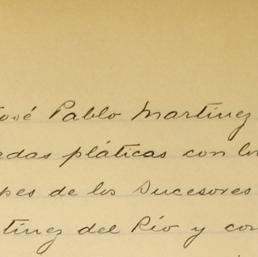 José Pablo Martínez
edas pláticas con los
pes de los Sucesores
tínez del Río y con